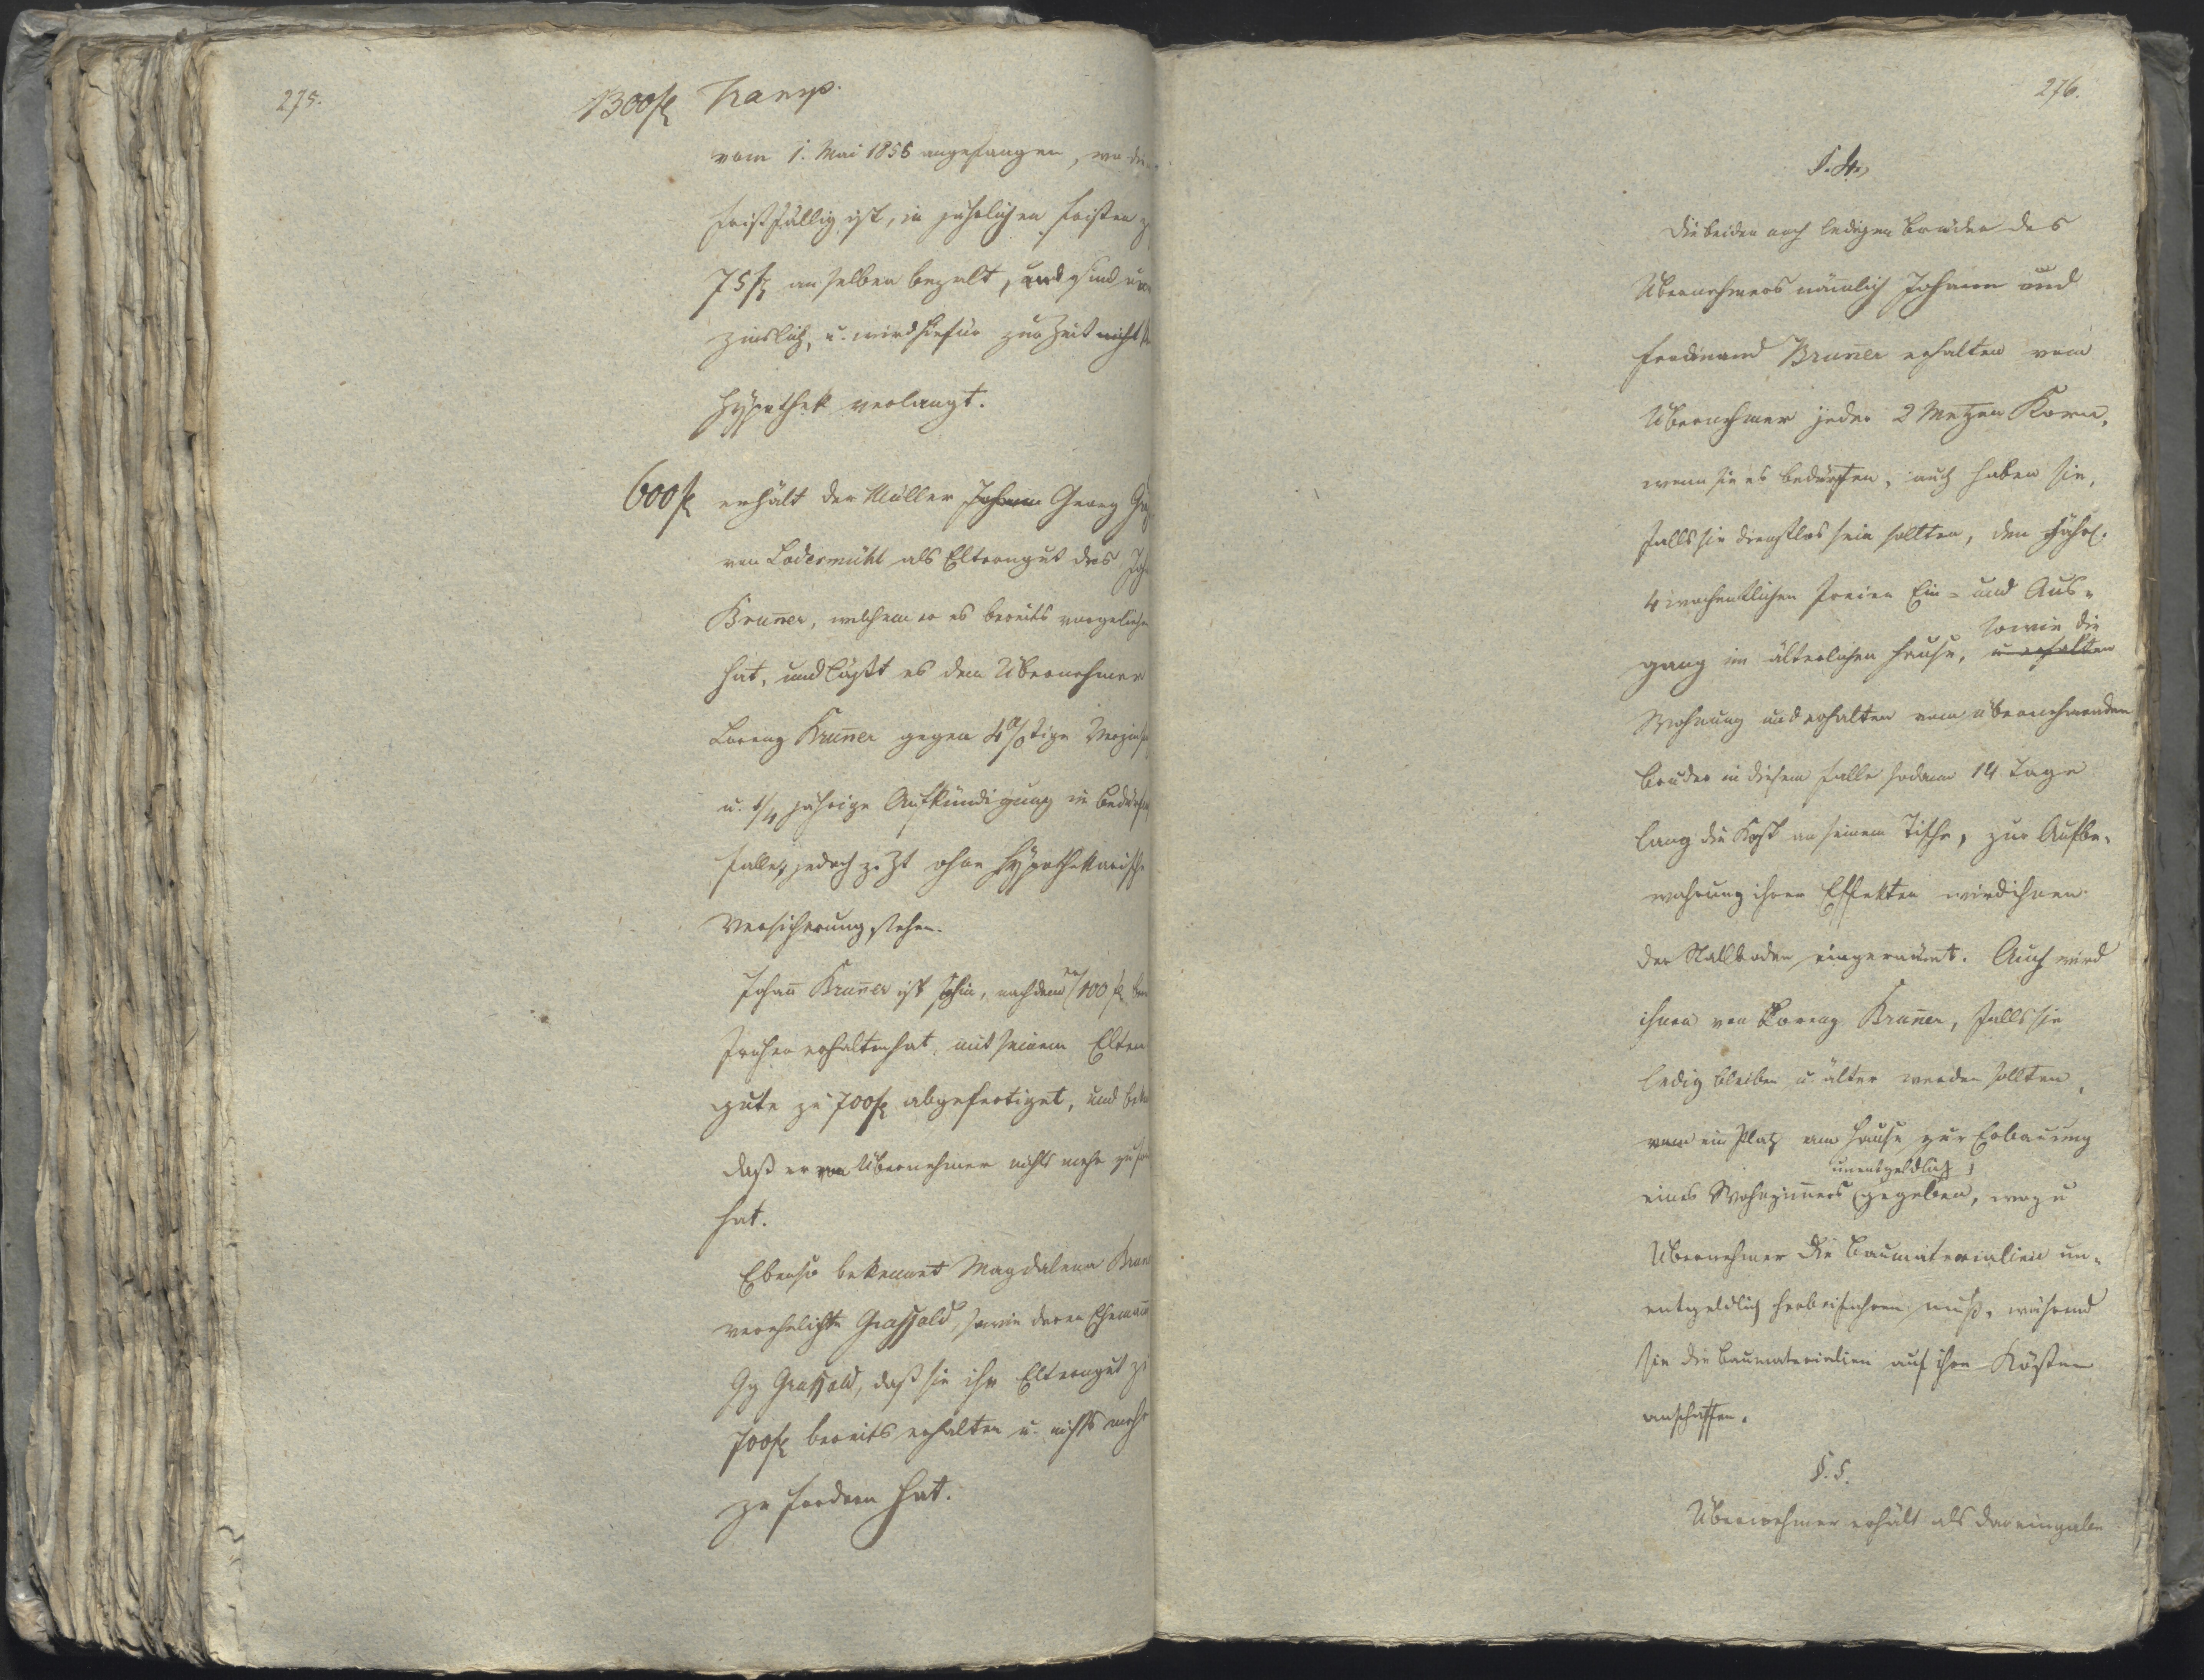 275.
1300 fl Transp.
vom 1. Mai 1856 angefangen, wo die
Frist fällig ist, in jährlichen Fristen zu
75 fl an selben bezalt, und sind un
zinslich, u. wird hiefür zur Zeit nicht
Hypothek verlangt.
600 fl erhält der Müller Johann Georg
von Lodermühl als Elterngut des Joh
Bruner, welchem er es bereits vorgeliehen
hat, und läßt es dem Übernehmer
Lorenz Bruner gegen 4%tige Verzinsu
u. 1/4 jährige Aufkündigung in Bedürfn
falle, jedoch z. Zt ohne Hypothekarische
Versicherung stehen.
Johan Bruner ist sohin, nachdem er 100 fl
früher erhalten hat, mit seinem Eltern
gute zu 700 fl abgefertiget, und beke
daß er vom Übernehmer nichts mehr zu for
hat.
Ebenso bekennet Magdalena Brun
verehelichte Grassold, sowie deren Eheman
Gg Grassold, daß sie ihr Elterngut zu
700 fl bereits erhalten u. nichts mehr
zu fordern hat.
276.
§. 4.
Die beiden noch ledigen Brüder des
Übernehmers nämlich Johann und
Ferdinand Bruner erhalten vom
Übernehmer jeder 2 Metzen Korn,
wenn sie es bedürfen, auch haben sie,
falls sie dienstlos sein sollten, den jährl.
4 wochentlichen freien Ein- und Aus-
sowie die
gang im älterlichen Hause, u erhalten
Wohnung und erhalten vom übernehmenden
Bruder in diesem Falle sodann 14 Tage
lang die Kost an seinem Tische, zur Aufbe-
wahrung ihrer Effekten wird ihnen
der Stallboden eingeräumt. Auch wird
ihnen von Lorenz Bruner, falls sie
ledig bleiben u. älter werden sollten,
ein Platz am Hause zur Erbauung
unentgeldlich
eines Wohnzimers gegeben, wozu
Übernehmer die Baumaterialien un-
entgeldlich herbeifahren muß, während
sie die Baumaterialien auf ihre Kösten
anschaffen.
§. 5.
Übernehmer erhält als Dareingabe